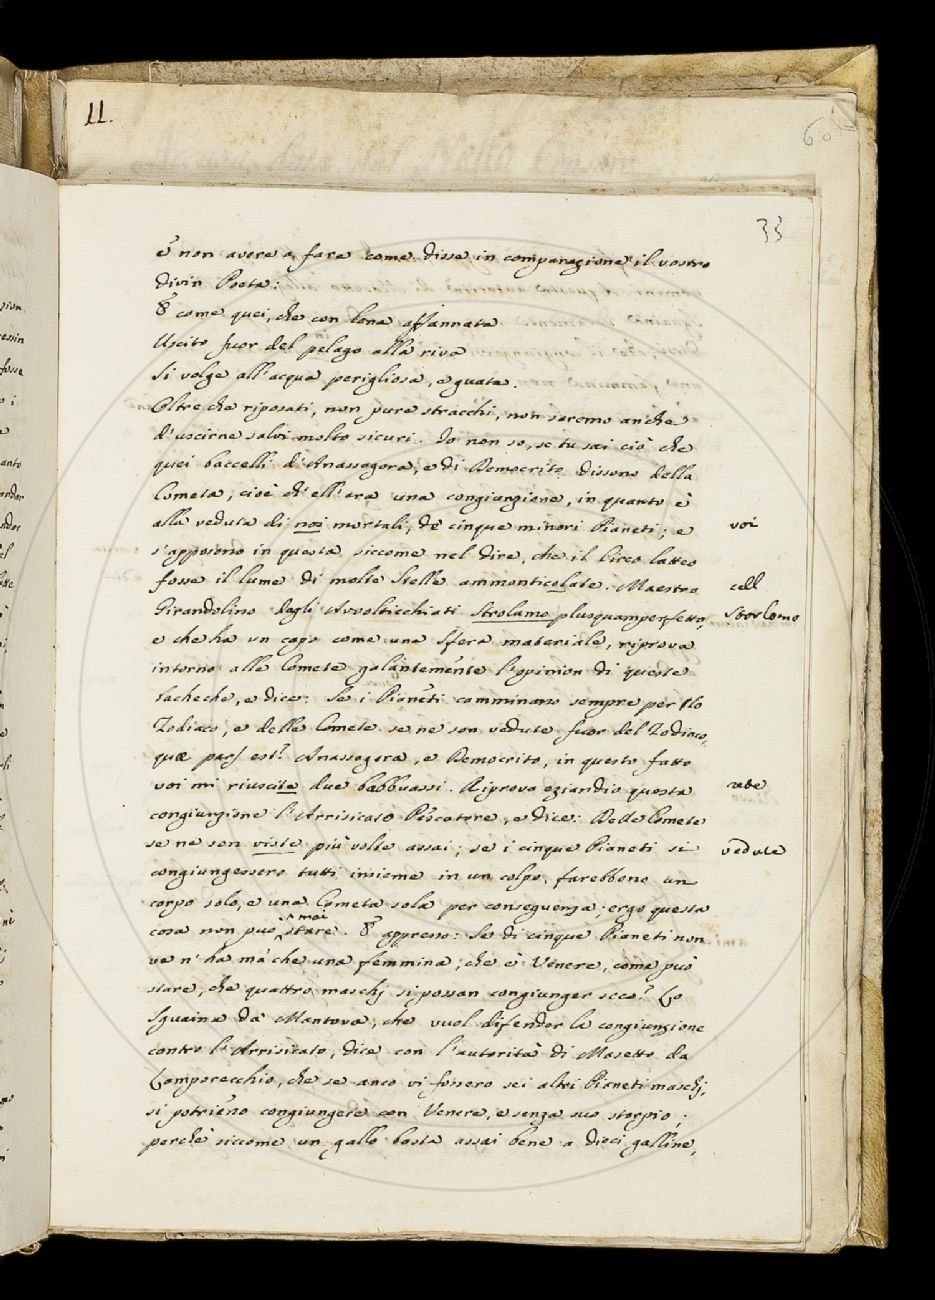 11.
60
33
e non avere a fare come disse in comparazione il vostro
divin Poeta:
E come quei, che con lena affannata
Uscito fuor del pelago alla riva
Si volge all'acqua perigliosa, e guata.
Oltre che riposati, non pure stracchi, non saremo anche
d'uscirne salvi molto sicuri. Io non so, se tu sai ciò che
quei baccelli d'Anassagora, e di Democrito dissono della
Cometa; cioè ch'ell'era una congiunzione, in quanto è
alla veduta di noi mortali, de' cinque minori Pianeti; e voi
s'apposono in questa siccome nel dire, che il Circo latteo
fosse il lume di molte Stelle ammonticolate. Maestro cell
Girandolino degli Avvolticchiati Strolamo plusquamperfetto, Storlomo
e che ha un capo come una sfera materiale, riprova
intorno alle Comete galantemente l'opinion di queste
lacheche, e dice: Se i Pianeti camminano sempre per llo
Zodiaco, e delle Comete se ne son vedute fuor del Zodiaco,
quæ pars est? Anassagora, e Democrito, in questo fatto
voi mi riuscite due babbuassi. Riprova eziandio questa rebe
congiunzione l'Arrisicato Pescatore, e dice: Delle Comete
se ne son viste più volte assai; se i cinque Pianeti si vedute
congiungessero tutti insieme in un colpo, farebbono un
corpo solo, e una Cometa sola per conseguenza; ergo questa
cosa non può mai stare. E appresso: Se di cinque Pianeti non
ve n'ha ma' che una femmina, che è Venere, come può
stare, che quattro maschj si possan congiunger seco? Lo
Sguaina da Mantova, che vuol difender la congiunzione
contro l'Arrisicato, dice con l'autorità di Masetto da
Lamporecchio, che se anco vi fossero sei altri Pianeti maschj,
si potrieno congiungere con Venere, e senza suo storpio;
perchè siccome un gallo basta assai bene a dieci galline,